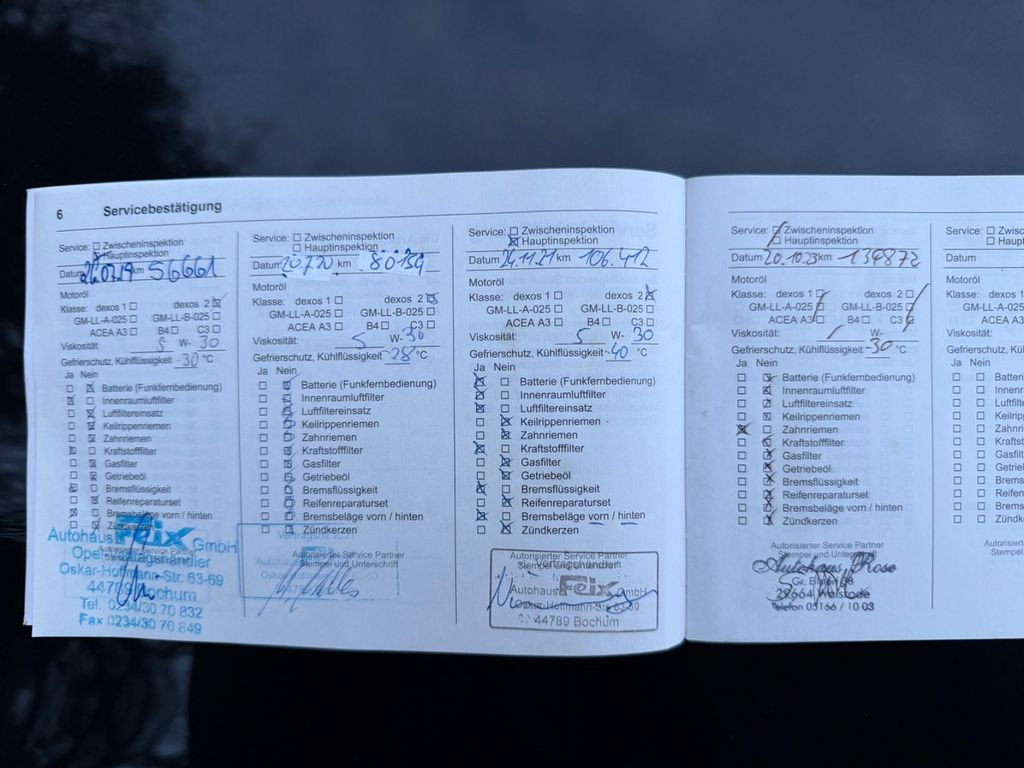 6 Servicebestätigung
Service: Zwischeninspektion
Hauptinspektion
Datum 26.07.19 km 56661
Motoröl
Klasse: dexos 1 dexos 2
GM-LL-A-025 GM-LL-B-025
ACEA A3 B4 C3
Viskosität: 5 W- 30
Gefrierschutz, Kühlflüssigkeit -30 °C
Ja Nein
Batterie (Funkfernbedienung)
Innenraumluftfilter
Luftfiltereinsatz
Keilrippenriemen
Zahnriemen
Kraftstofffilter
Gasfilter
Getriebeöl
Bremsflüssigkeit
Reifenreparaturset
Bremsbeläge vorn / hinten
Zündkerzen
Autorisierter Service Partner
Autohaus Feix GmbH
Opel Vertragshändler
Oskar-Hoffmann-Str. 63-69
44789 Bochum
Tel. 0234/30 70 832
Fax 0234/30 70 849
Service: Zwischeninspektion
Hauptinspektion
Datum km 80154
Motoröl
Klasse: dexos 1 dexos 2
GM-LL-A-025 GM-LL-B-025
ACEA A3 B4 C3
Viskosität: 5 W- 30
Gefrierschutz, Kühlflüssigkeit -28 °C
Ja Nein
Batterie (Funkfernbedienung)
Innenraumluftfilter
Luftfiltereinsatz
Keilrippenriemen
Zahnriemen
Kraftstofffilter
Gasfilter
Getriebeöl
Bremsflüssigkeit
Reifenreparaturset
Bremsbeläge vorn / hinten
Zündkerzen
Autorisierter Service Partner
Stempel und Unterschrift
Service: Zwischeninspektion
Hauptinspektion
Datum 24.11.21 km 106.412
Motoröl
Klasse: dexos 1 dexos 2
GM-LL-A-025 GM-LL-B-025
ACEA A3 B4 C3
Viskosität: 5 W- 30
Gefrierschutz, Kühlflüssigkeit -40 °C
Ja Nein
Batterie (Funkfernbedienung)
Innenraumluftfilter
Luftfiltereinsatz
Keilrippenriemen
Zahnriemen
Kraftstofffilter
Gasfilter
Getriebeöl
Bremsflüssigkeit
Reifenreparaturset
Bremsbeläge vorn / hinten
Zündkerzen
Autorisierter Service Partner
Stempel und Unterschrift
Vertragshändler
Autohaus Feix GmbH
Oskar-Hoffmann-Str. 63-69
44789 Bochum
Service: Zwischeninspektion
Hauptinspektion
Datum 20.10.23 km 134872
Motoröl
Klasse: dexos 1 dexos 2
GM-LL-A-025 GM-LL-B-025
ACEA A3 B4 C3
Viskosität: W-
Gefrierschutz, Kühlflüssigkeit -30 °C
Ja Nein
Batterie (Funkfernbedienung)
Innenraumluftfilter
Luftfiltereinsatz
Keilrippenriemen
Zahnriemen
Kraftstofffilter
Gasfilter
Getriebeöl
Bremsflüssigkeit
Reifenreparaturset
Bremsbeläge vorn / hinten
Zündkerzen
Autorisierter Service Partner
Stempel und Unterschrift
Autohaus Rose
29664 Walsrode
Telefon 05166 / 10 03
Service: Zwisc
Haupt
Datum
Motoröl
Klasse: dexos 1
GM-LL-A-025
ACEA A3
Viskosität:
Gefrierschutz, Kühlfl
Ja Nein
Batterie
Innenra
Luftfilte
Keilripp
Zahnri
Kraftst
Gasfilt
Getrie
Brems
Reifen
Brems
Zündk
Autorisie
Stempel